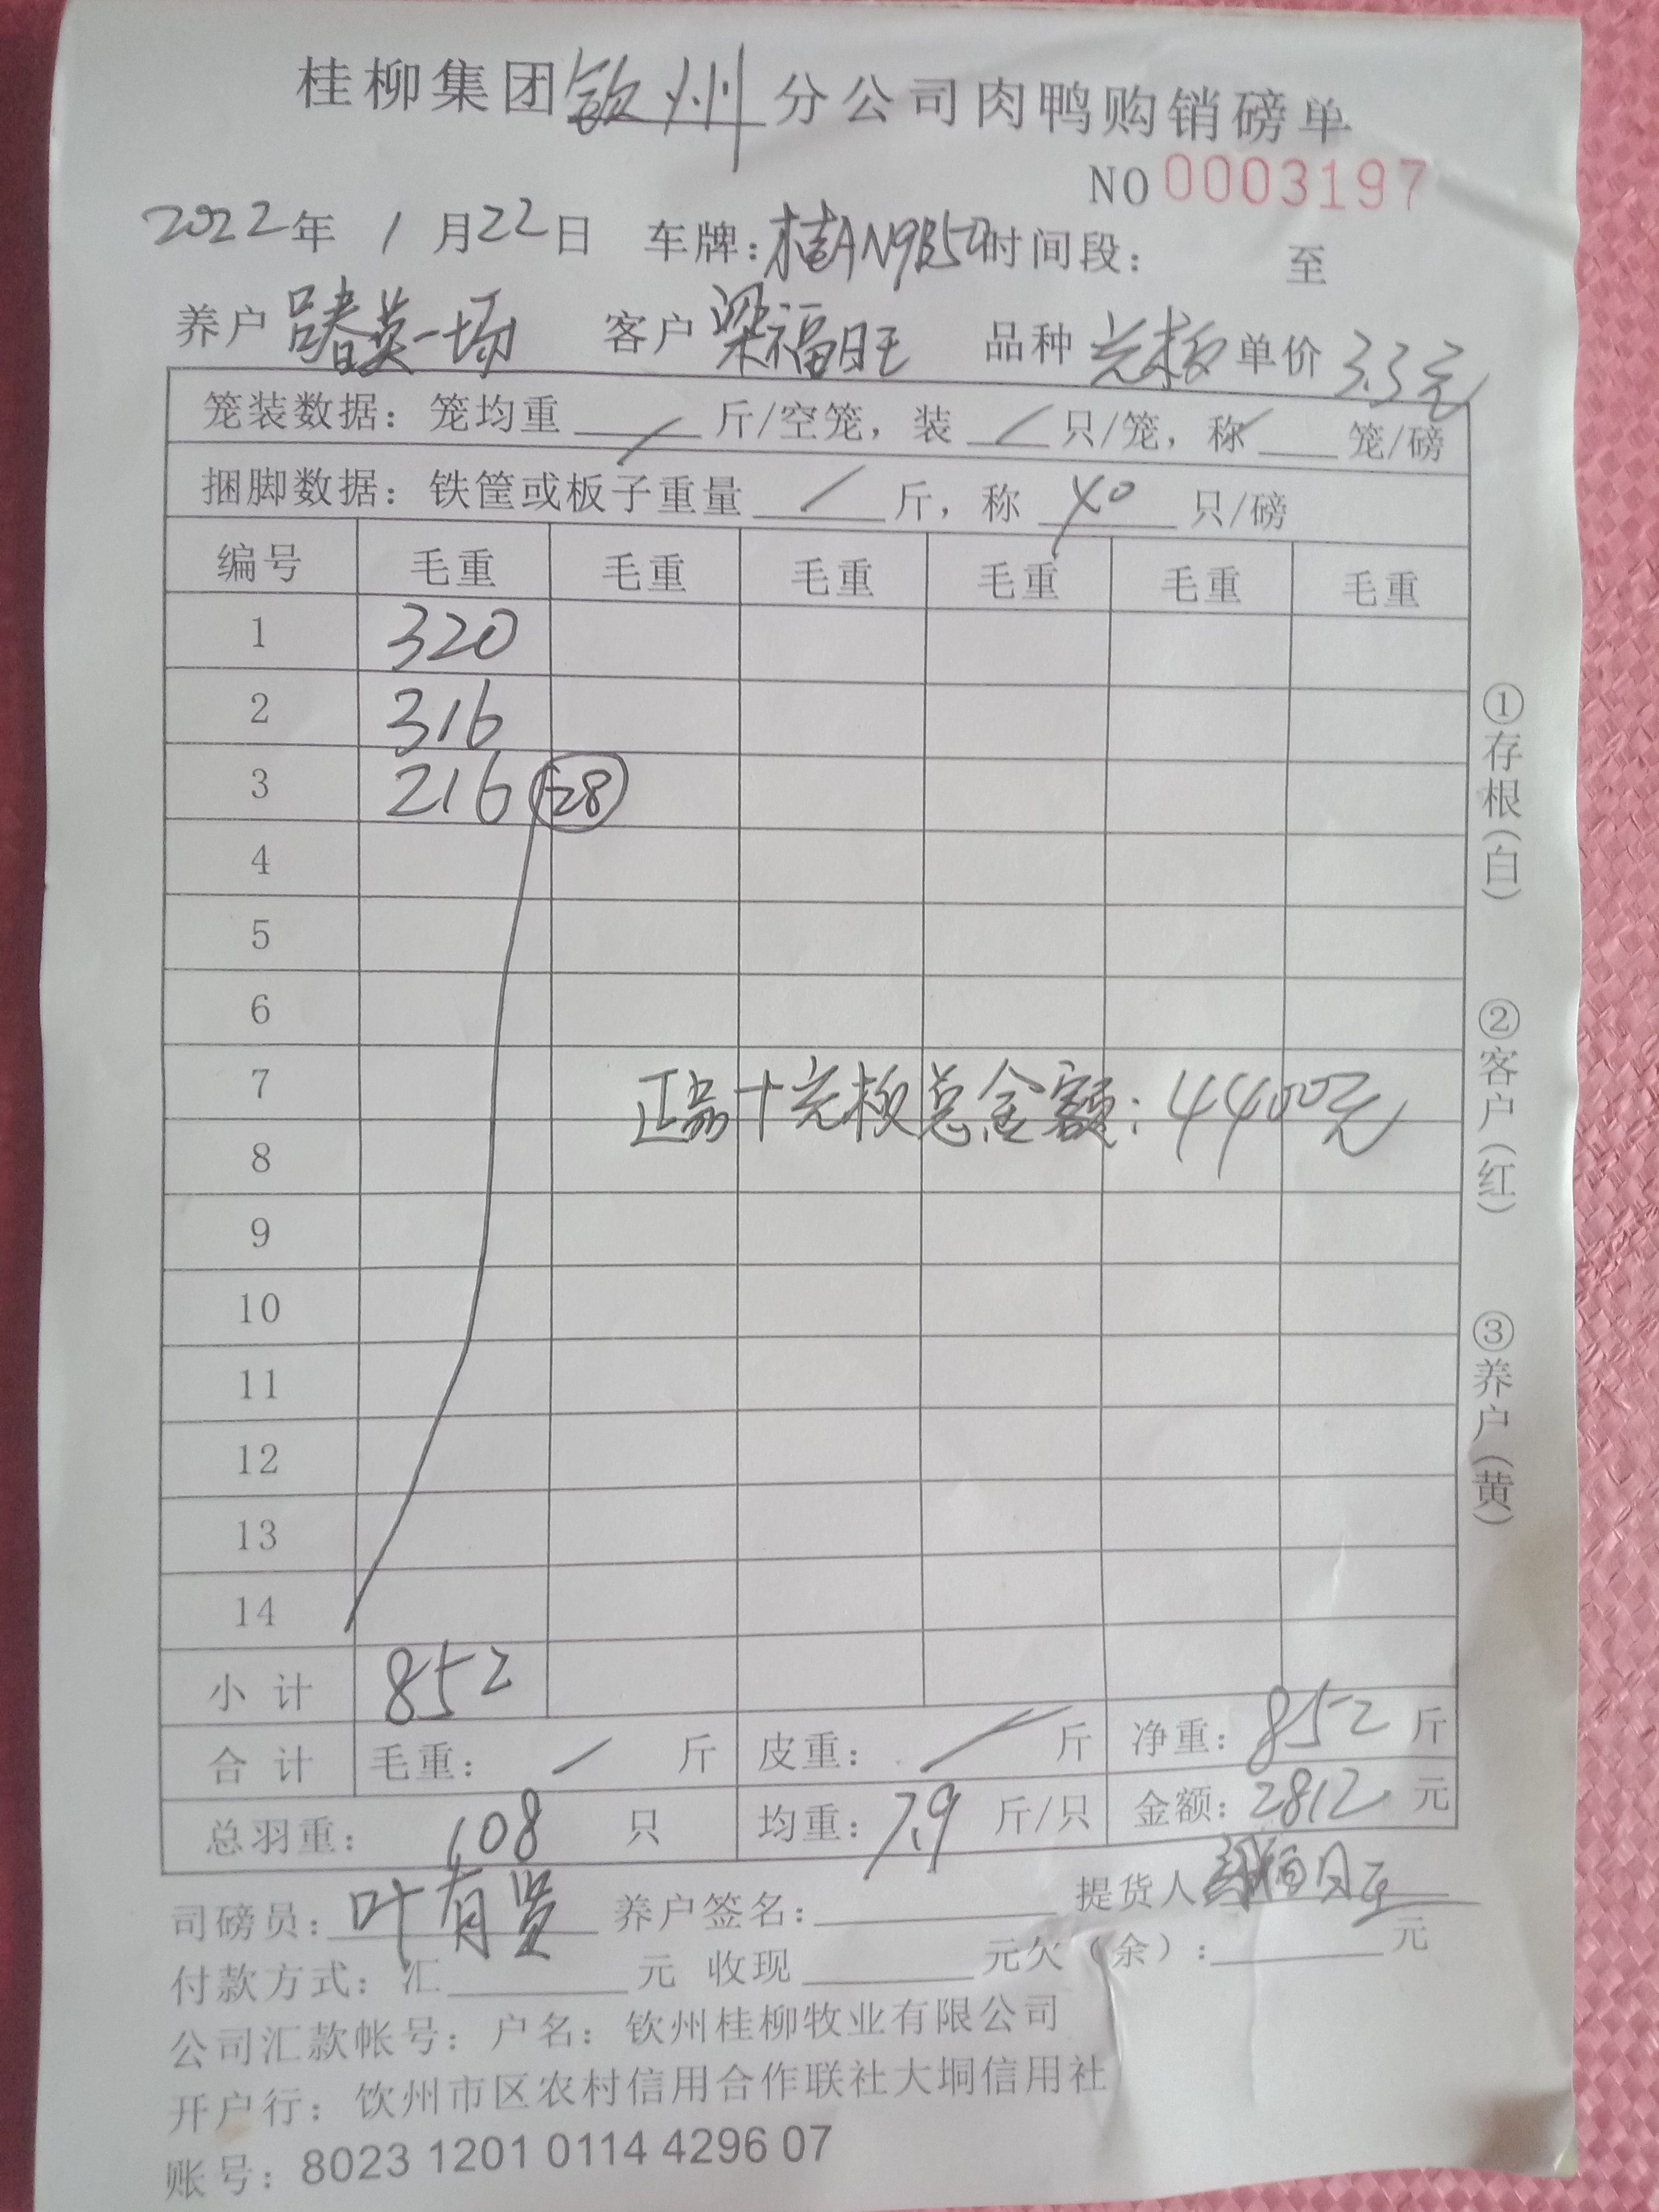 桂柳集团钦州分公司肉鸭购销磅单
NO 0003197
2022年 1 月22日 车牌: 时间段: 至
养户 吕春英一场 客户 梁福旺 品种 元板 单价 3.3元
笼装数据: 笼均重 / 斤/空笼, 装 / 只/笼, 称 / 笼/磅
捆脚数据: 铁筐或板子重量 / 斤, 称 40 只/磅
编号 毛重 毛重 毛重 毛重 毛重 毛重
1 320
2 316
3 216 28
4
5
6
7
正品+元板总金额: 4400元
8
9
10
11
12
13
14
小计 852
合计 毛重: / 斤 皮重: / 斤 净重: 852 斤
总羽重: 108 只 均重: 7.9 斤/只 金额: 2812 元
司磅员: 叶有贤 养户签名: 提货人 梁福旺
付款方式: 汇 元 收现 元欠(余): 元
公司汇款帐号: 户名: 钦州桂柳牧业有限公司
开户行: 饮州市区农村信用合作联社大垌信用社
账号: 8023 1201 0114 4296 07
①存根(白)
②客户(红)
③养户(黄)